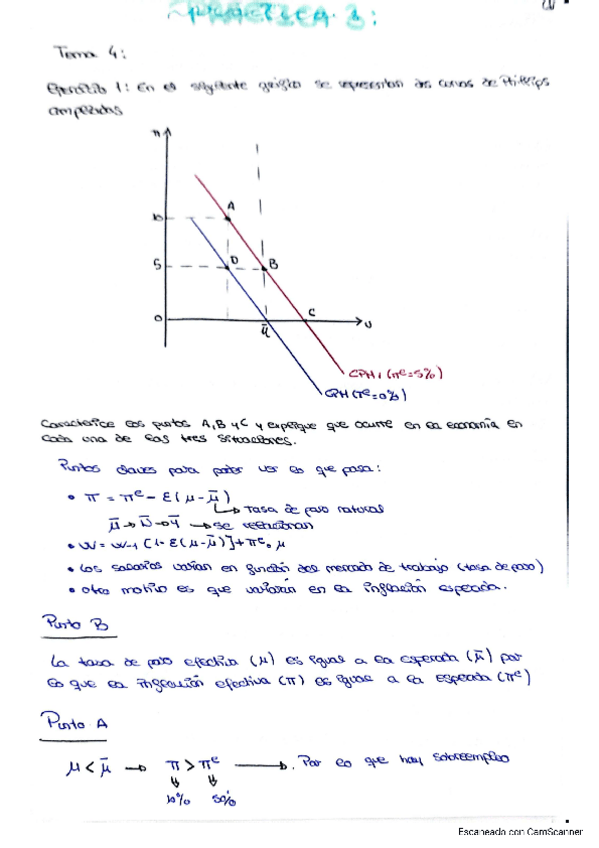 PRACTICA 3:
Tema 4:
Ejercicio 1: En el siguiente gráfico se representan dos curvas de Phillips
ampliadas
π
A
10
5
D
B
0
C
u
ū
CPH₁ (πᵉ=5%)
CPH (πᵉ=0%)
Caracterice los puntos A, B y C y explique que ocurre en la economía en
cada una de las tres situaciones.
Puntos claves para poder ver lo que pasa:
• π = πᵉ - ε(μ - μ̄)
↳ Tasa de paro natural
μ̄ → N̄ → Ȳ → se relacionan
• W = W-1 [1- ε(μ-μ̄)] + πᵉ. μ
• Los salarios varían en función del mercado de trabajo (tasa de paro)
• Otro motivo es que variarán en la inflación esperada.
Punto B
La tasa de paro efectiva (μ) es igual a la esperada (μ̄) por
lo que la inflación efectiva (π) es igual a la esperada (πᵉ)
Punto A
μ < μ̄ → π > πᵉ → . Por lo que hay sobreempleo
10% 5%
Escaneado con CamScanner